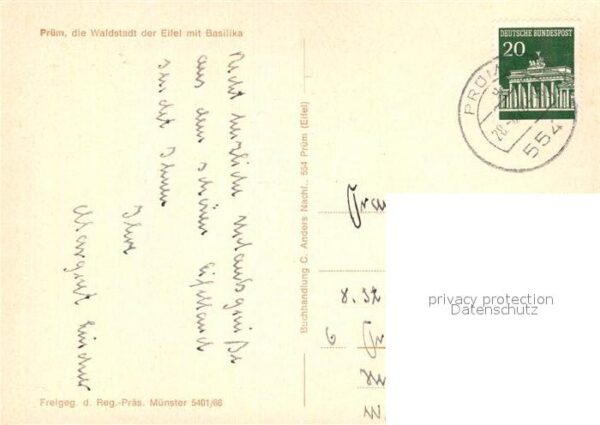 Prüm, die Waldstadt der Eifel mit Basilika
Recht herzliche Urlaubsgrüße
aus dem schönen Eifelland
sendet Ihnen
Ihre
Margret
Freigeg. d. Reg.-Präs. Münster 5401/66
Buchhandlung C. Anders Nachf., 554 Prüm (Eifel)
DEUTSCHE BUNDESPOST
20
PRÜM
554
8.
6
privacy protection
Datenschutz